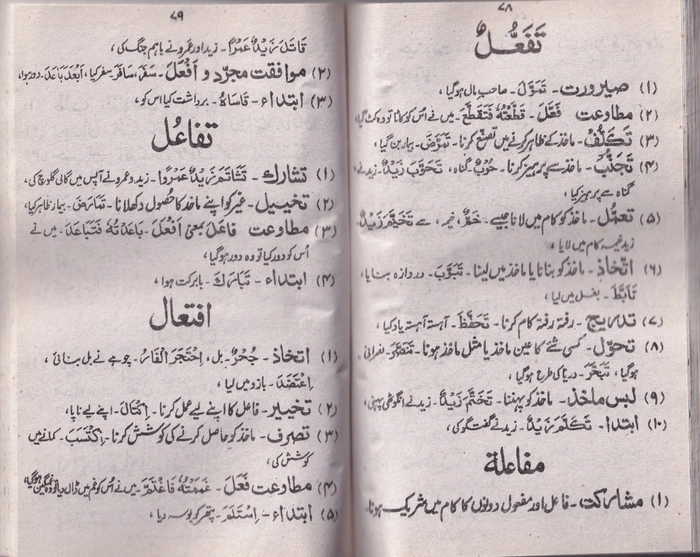 ۷۸
تَفَعُّلٌ
(۱) صیرورت - تَمَوَّلَ - صاحب مال ہوگیا ،
(۲) مطاوعت فَعَّلَ - قَطَّعْتُهٗ فَتَقَطَّعَ - میں نے اُس کو کاٹا تو وہ کٹ گیا
(۳) تَکَلُّفْ - ماخذ کے ظاہر کرنے میں تصنّع کرنا - تَمَرَّضَ - بیمار بن گیا ،
(۴) تَجَنُّبْ - ماخذ سے پرہیز کرنا - حُوْبٌ گناہ ، تَحَوَّبَ زَیْدٌ - زید نے
گناہ سے پرہیز کیا ،
(۵) تعمّل - ماخذ کو کام میں لانا جیسے - خیمہ ، سے تَخَیَّمَ زَیْدٌ
زید خیمہ کام میں لایا ،
(۶) اتّخاذ - ماخذ کو بنانا یا ماخذ میں لینا - تَبَوَّبَ - دروازہ بنایا ،
تَأَبَّطَ - بغل میں لیا ،
(۷) تدریج - رفتہ رفتہ کام کرنا - تَحَفَّظَ - آہستہ آہستہ یاد کیا ،
(۸) تحوّل - کسی شے کا عین ماخذ یا مثل ماخذ ہونا - تَنَصَّرَ - نصرانی
ہوگیا ، تَبَحَّرَ - دریا کی طرح ہوگیا ،
(۹) لبس ماخذ - ماخذ کو پہننا - تَخَتَّمَ زَیْدٌ - زید نے انگوٹھی پہنی ،
(۱۰) ابتدا - تَکَلَّمَ زَیْدٌ - زید نے گفتگو کی ،
مفاعلة
(۱) مشارکت - فاعل اور مفعول دونوں کا کام میں شریک ہونا
۷۹
قَاتَلَ زَیْدٌ عَمْرًا - زید اور عمرو نے باہم جنگ کی ،
(۲) موافقت مجرّد و اَفْعَلَ - سَفَرَ ، سَافَرَ سفر کیا ، اَبْعَدَ بَاعَدَ - دور ہوا ،
(۳) ابتداء - قَاسَاهُ - برداشت کیا اس کو ،
تفاعُل
(۱) تشارک - تَشَاتَمَ زَیْدٌ عَمْرٌوا - زید و عمرو نے آپس میں گالی گلوچ کی ،
(۲) تخییل - غیر کو اپنے ماخذ کا حصول دکھلانا - تَمَارَضَ - بیمار ظاہر کیا ،
(۳) مطاوعت فاعَلَ بمعنی اَفْعَلَ - بَاعَدْتُهٗ فَتَبَاعَدَ - میں نے
اُس کو دور کیا تو وہ دور ہوگیا ،
(۴) ابتداء - تَبَارَكَ - بابرکت ہوا ،
افتعال
(۱) اتخاذ - جُحْرٌ - بل ، اِحْتَجَرَ الْفَارُ - چوہے نے بل بنائی ،
اِعْتَضَدَ - بازو میں لیا ،
(۲) تخییر - فاعل کا اپنے لیے عمل کرنا - اِکْتَالَ - اپنے لیے ناپا ،
(۳) تصرف - ماخذ کو حاصل کرنے کی کوشش کرنا - اِکْتَسَبَ - کمانے میں
کوشش کی ،
(۴) مطاوعت فَعَلَ - غَمَمْتُهٗ فَاغْتَمَّ - میں نے اُس کو غم میں ڈال دیا تو وہ غمگین ہوگیا ،
(۵) ابتداء - اِسْتَلَمَ - پتھر کو بوسہ دیا ،